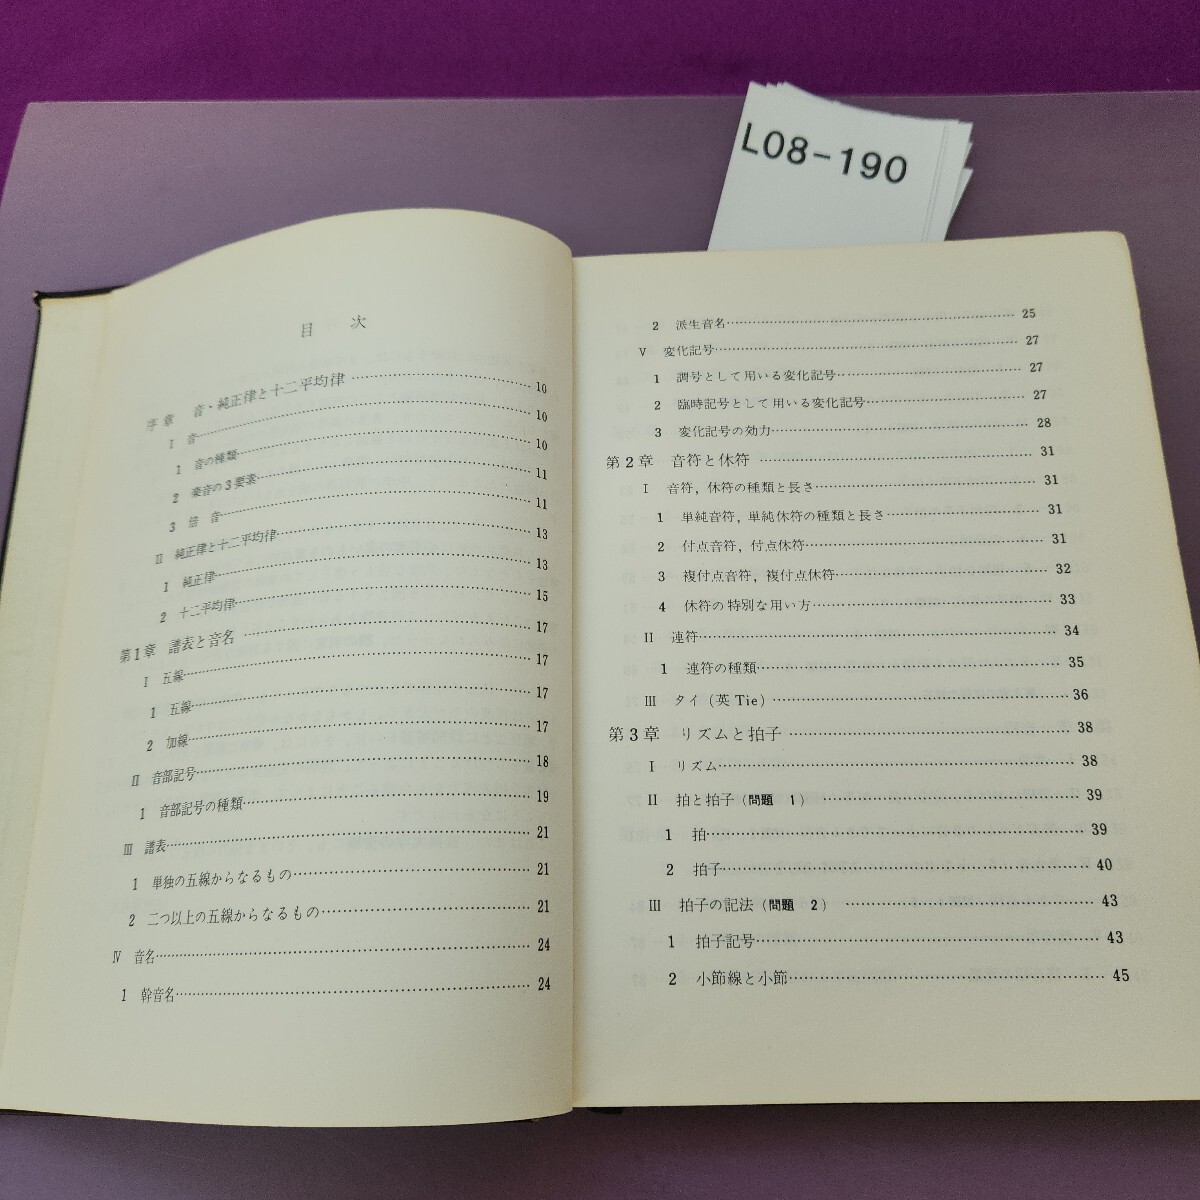 L08-190
目 次
序 章 音・純正律と十二平均律 10
I 音 10
1 音の種類 10
2 楽音の3要素 11
3 倍 音 11
II 純正律と十二平均律 13
1 純正律 13
2 十二平均律 15
第1章 譜表と音名 17
I 五線 17
1 五線 17
2 加線 17
II 音部記号 18
1 音部記号の種類 19
III 譜表 21
1 単独の五線からなるもの 21
2 二つ以上の五線からなるもの 21
IV 音名 24
1 幹音名 24
2 派生音名 25
V 変化記号 27
1 調号として用いる変化記号 27
2 臨時記号として用いる変化記号 27
3 変化記号の効力 28
第2章 音符と休符 31
I 音符, 休符の種類と長さ 31
1 単純音符, 単純休符の種類と長さ 31
2 付点音符, 付点休符 31
3 複付点音符, 複付点休符 32
4 休符の特別な用い方 33
II 連符 34
1 連符の種類 35
III タイ (英 Tie) 36
第3章 リズムと拍子 38
I リズム 38
II 拍と拍子 (問題 1) 39
1 拍 39
2 拍子 40
III 拍子の記法 (問題 2) 43
1 拍子記号 43
2 小節線と小節 45